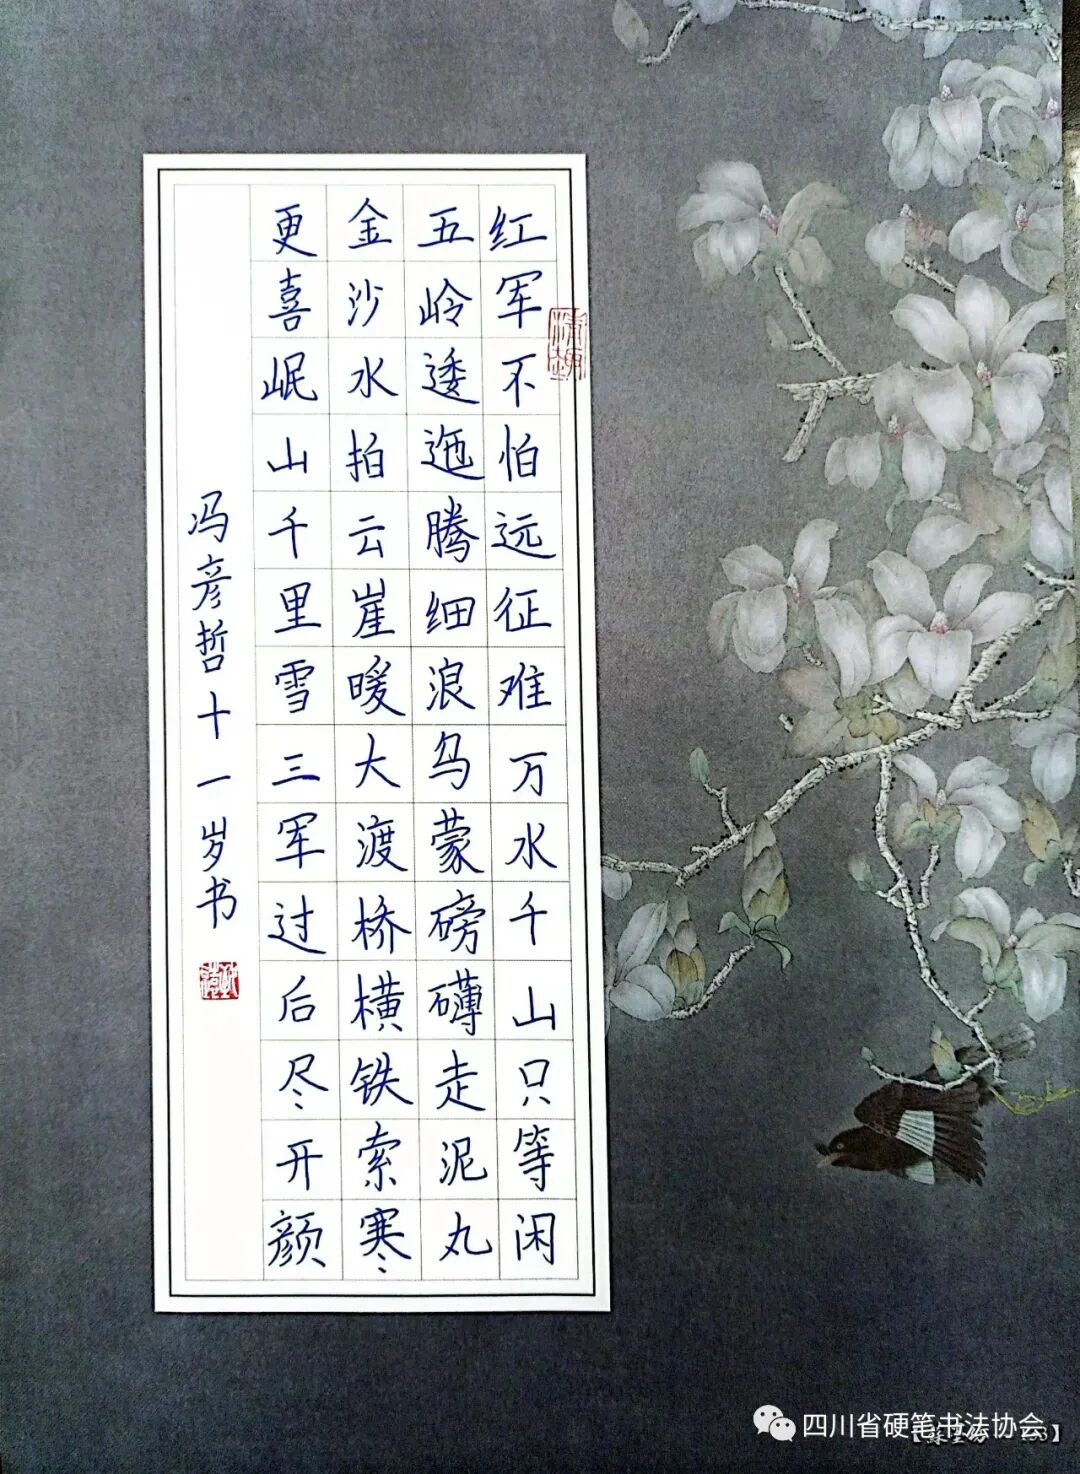 红军不怕远征难万水千山只等闲
五岭逶迤腾细浪乌蒙磅礴走泥丸
金沙水拍云崖暖大渡桥横铁索寒
更喜岷山千里雪三军过后尽开颜
冯彦哲十一岁书
四川省硬笔书法协会